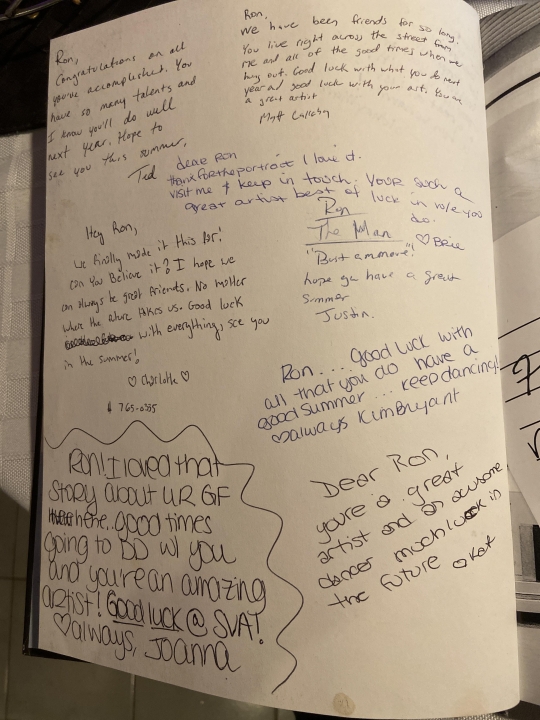 Ron,
Congratulations on all
you've accomplished. You
have so many talents and
I know you'll do well
next year. Hope to
see you this summer,
Ted
Ron,
We have been friends for so long.
You live right across the street from
me and all of the good times when we
hung out. Good luck with what you do next
year and good luck with your art. You are
a great artist
Matt
dear Ron
thank for the portrait I love it.
visit me & keep in touch. Your such a
great artist best of luck in w/e you
do.
♡ Brie
Ron
The Man
"Bust a move!"
hope ya have a great
summer
Justin.
Hey Ron,
we finally made it this far!
Can you Believe it? I hope we
can always be great friends. No matter
where the future takes us. Good luck
with everything, see you
in the summer!
♡ Charlotte ♡
765-0385
Ron.... good luck with
all that you do have a
good summer... keep dancing!
♡always Kim Bryant
Ron! I loved that
story about UR GF
here.. good times
going to DD w/ you
and you're an amazing
artist! Good luck @ SVA!
♡always, Joanna
Dear Ron,
you're a great
artist and an awesome
dancer much luck in
the future Kat